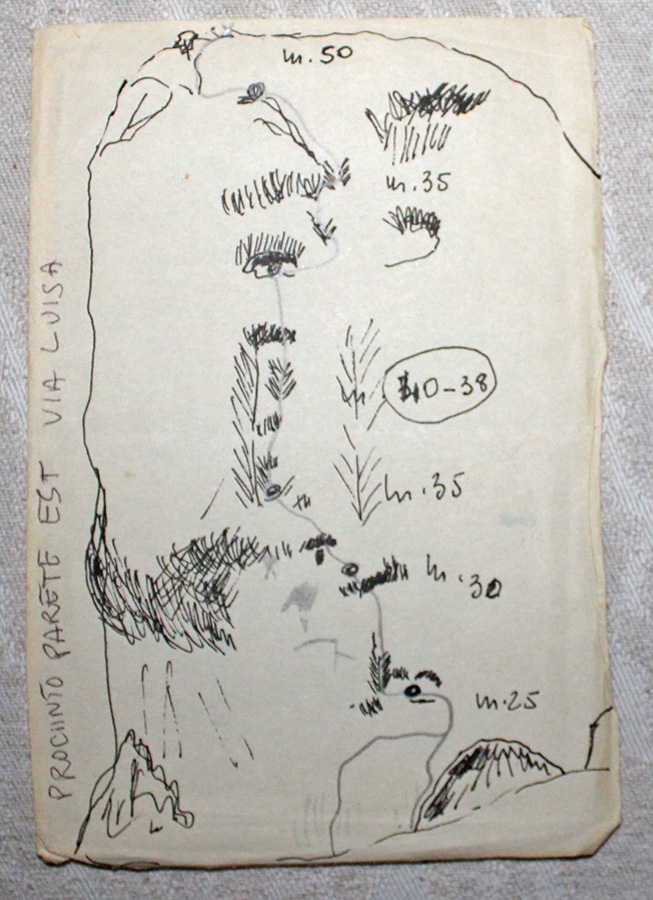 m. 50
m. 35
40-38
m. 35
m. 30
m. 25
PROCINTO PARETE EST VIA LUISA